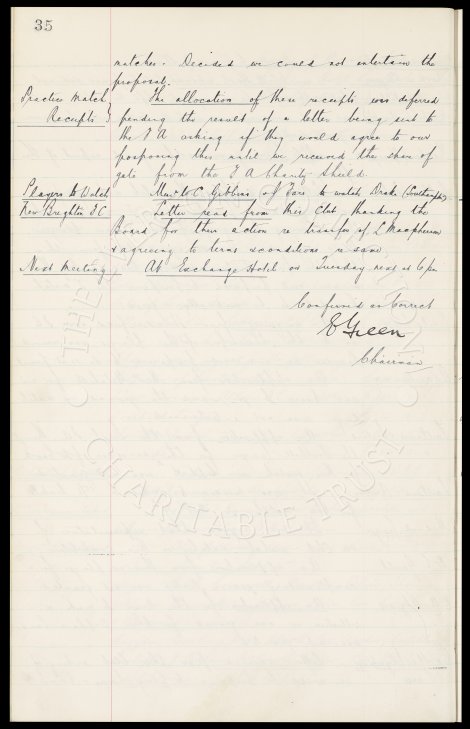 35
matches. Decided we could not entertain the
proposal.
Practice Match The allocation of these receipts was deferred
Receipts pending the result of a letter being sent to
the F A asking if they would agree to our
postponing this until we received the share of
gate from the F A Charity Shield.
Players to Watch Messrs C Gibbins of to watch Drake (Southampton)
New Brighton F C Letter read from this Club thanking the
Board for their action re transfer of L Macpherson
& agreeing to terms & conditions re same
Next Meeting At Exchange Hotel on Tuesday next at 6 pm
Confirmed as Correct
E Green
Chairman
THE
CHARITABLE TRUST